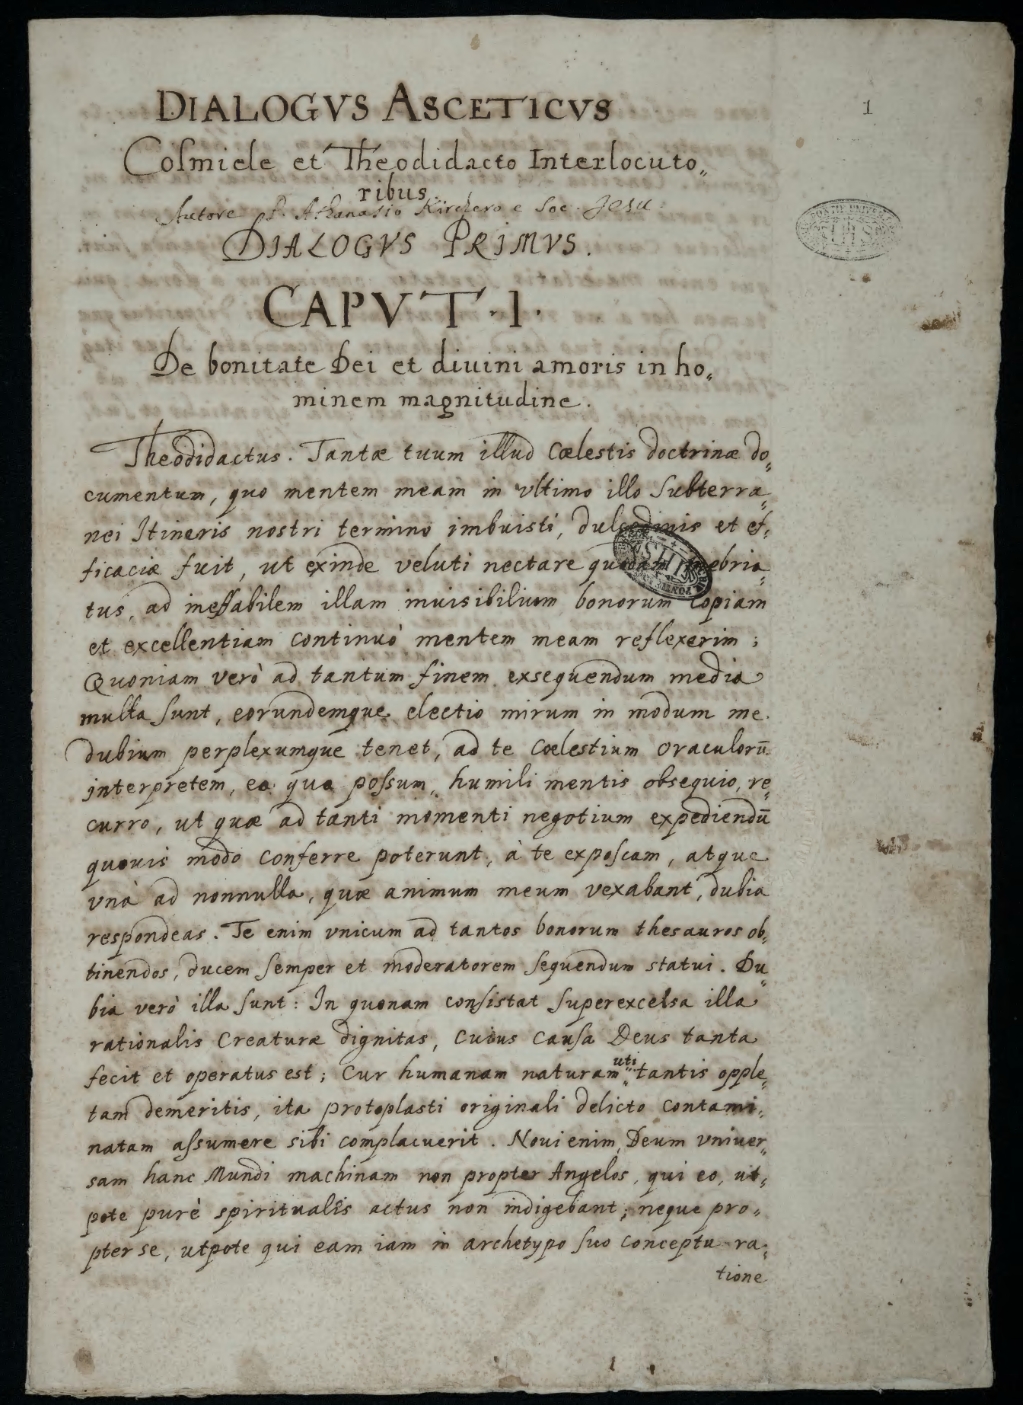 1
DIALOGVS ASCETICVS
Cosmiele et Theodidacto Interlocuto„
ribus
Autore P. Athanasio Kirchero e Soc. Jesu.
DIALOGVS PRIMVS.
CAPVT · I ·
De bonitate Dei et diuini amoris in ho„
minem magnitudine.
Theodidactus. Tantæ tuum illud Cœlestis doctrinæ do„
cumentum, quo mentem meam in vltimo illo Subterra„
nei Itineris nostri termino imbuisti, dulcedinis et ef„
ficaciæ fuit, ut exinde veluti nectare quodam inebria„
tus, ad ineffabilem illam inuisibilium bonorum copiam
et excellentiam continuò mentem meam reflexerim;
Quoniam verò ad tantum finem exsequendum media
multa sunt, eorundemque electio mirum in modum me
dubium perplexumque tenet, ad te Cœlestium oraculorū
interpretem, eo quo possum, humili mentis obsequio, re„
curro, ut quæ ad tanti momenti negotium expediendū
quouis modo conferre poterunt, à te exposcam, atque
vnà ad nonnulla, quæ animum meum vexabant, dubia
respondeas. Te enim vnicum ad tantos bonorum thesauros ob„
tinendos, ducem semper et moderatorem sequendum statui. Du„
bia verò illa sunt: In quonam consistat superexcelsa illa
rationalis Creaturæ dignitas, cuius causa Deus tanta
fecit et operatus est; Cur humanam naturam uti tantis opple„
tam demeritis, ita protoplasti originali delicto contami„
natam assumere sibi complacuerit. Noui enim, Deum vniuer„
sam hanc Mundi machinam non propter Angelos, qui eo, ut„
pote purè spiritualis actus non indigebant; neque pro„
pter se, utpote qui eam iam in archetypo suo conceptu ra„
tione
1